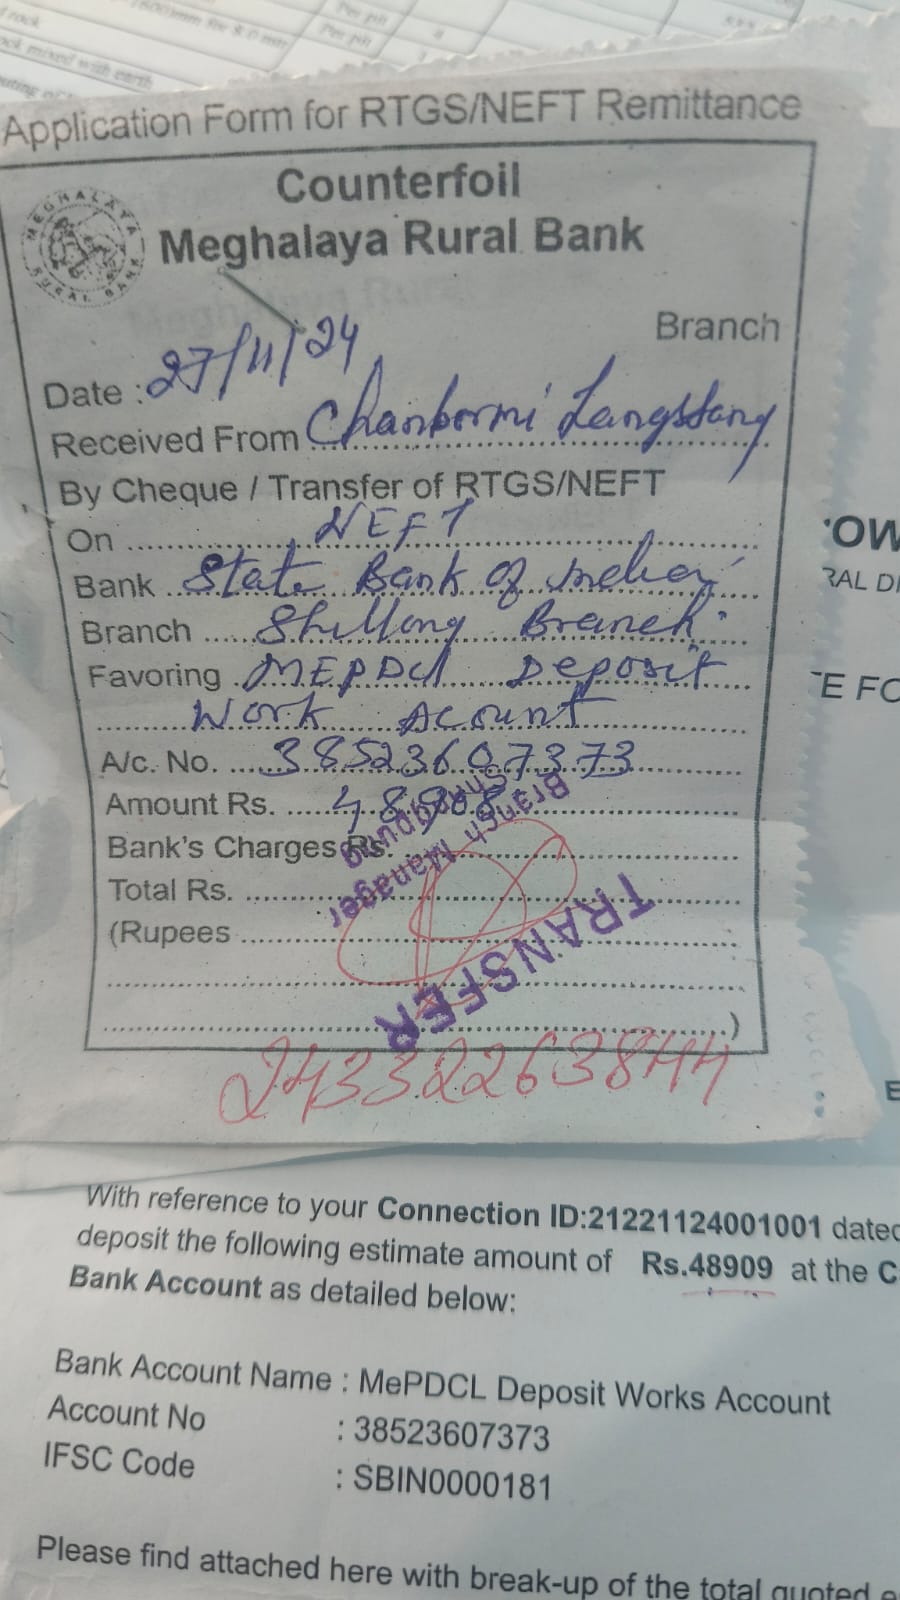 rock
ock mixed with earth
Per pit
Per pit
Application Form for RTGS/NEFT Remittance
Counterfoil
MEGHALAYA RURAL BANK
Meghalaya Rural Bank
Branch
Date : 27/11/24
Received From Chanbormi Langstang
By Cheque / Transfer of RTGS/NEFT
On NEFT
Bank State Bank of India
Branch Shillong Branch
Favoring MEPDCL Deposit
Work Acount
A/c. No. 38523607373
Amount Rs.
Bank's Charges Rs.
Branch Manager
Total Rs.
TRANSFER
(Rupees
)
243322638444
OW
RAL DI
E FO
E
With reference to your Connection ID:21221124001001 dated
deposit the following estimate amount of Rs.48909 at the C
Bank Account as detailed below:
Bank Account Name : MePDCL Deposit Works Account
Account No : 38523607373
IFSC Code : SBIN0000181
Please find attached here with break-up of the total quoted e